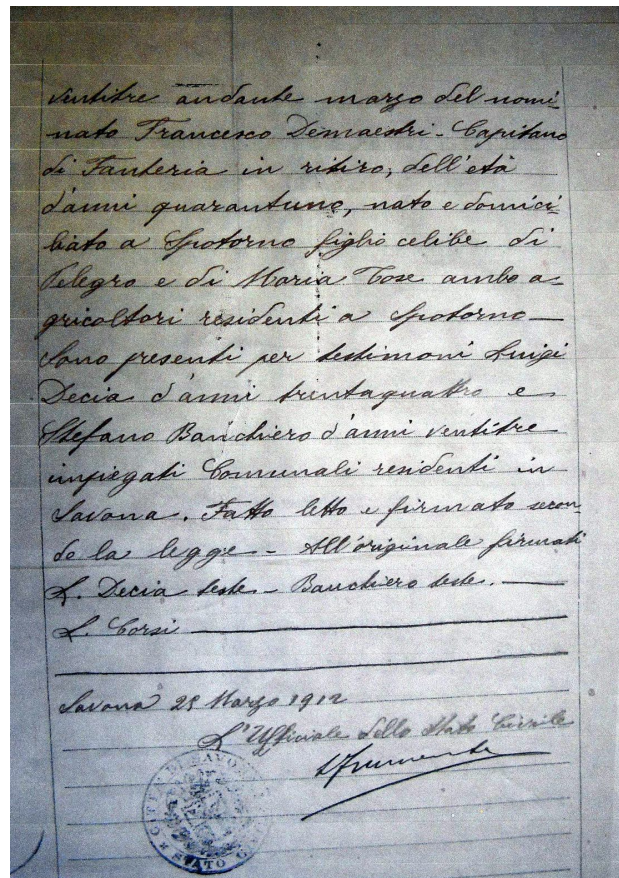 ventitre andante marzo del nomi-
nato Francesco Demaestri - Capitano
di Fanteria in ritiro, dell'età
d'anni quarantuno, nato e domici-
liato a Spotorno figlio celibe di
Pelegro e di Maria Tose ambo a-
gricoltori residenti a Spotorno —
Sono presenti per testimoni Luigi
Decia d'anni trentaquattro e
Stefano Banchiero d'anni ventitre
impiegati Comunali residenti in
Savona. Fatto letto e firmato secon-
do la legge - All'originale firmati
L. Decia teste - Banchiero teste. —
L. Corsi —
Savona 25 Marzo 1912
L'Ufficiale dello Stato Civile
CITTÀ DI SAVONA
STATO CIVILE